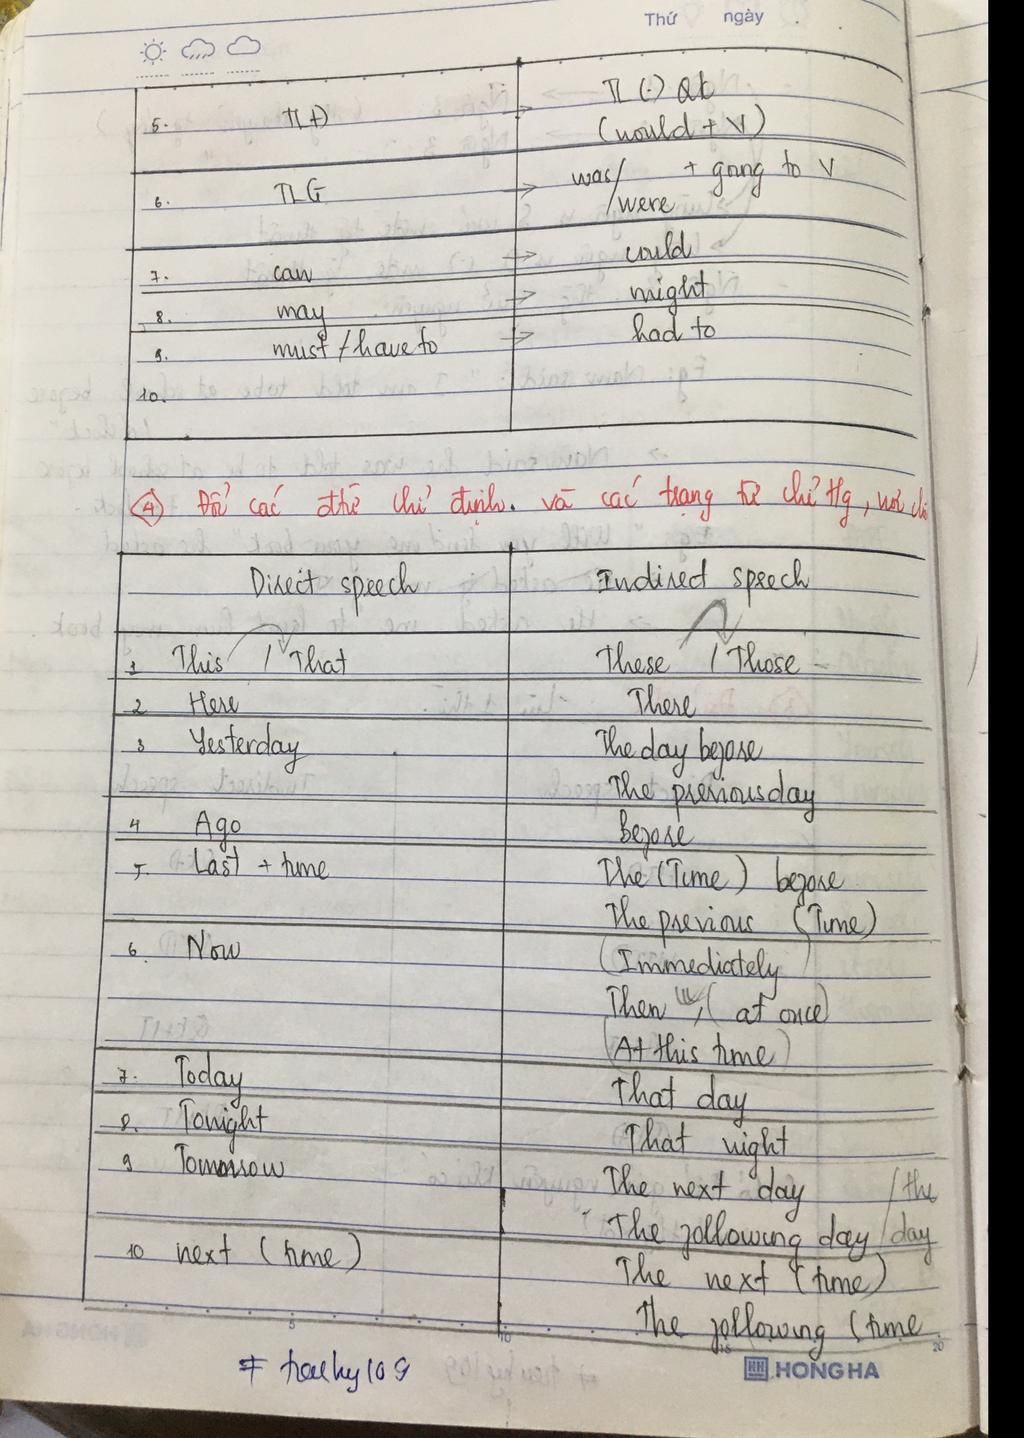 Thứ ngày
5. TLĐ TL(·) Qk
(would + V)
6. TLG → was/ + going to V
/were
7. can → could
8. may → might
9. must / have to → had to
10.
④ Đổi các chỉ định. và các trạng từ chỉ tg, nơi
Direct speech Indirect speech
1 This / That These / Those
2 Here There
3 Yesterday The day before
The previous day
4 Ago before
5. Last + time The (Time) before
The previous (Time)
6. Now (Immediately)
Then , (at once)
(At this time)
7. Today That day
8. Tonight That night
9 Tomorrow The next day / the
The following day / day
10 next (time) The next (time)
The following (time
5 10 15 20
HONG HA